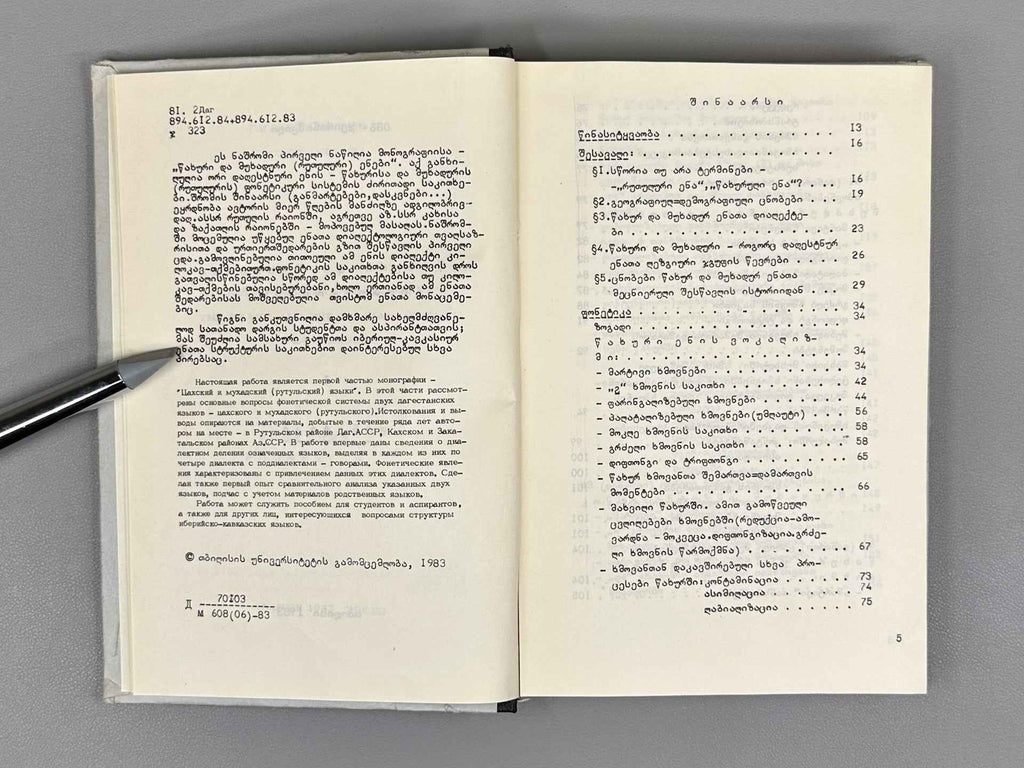 81. 2Даг
894.612.84+894.612.83
ჯ 323
ეს ნაშრომი პირველი ნაწილია მონოგრაფიისა -
„წახური და მუხადური (რუთულური) ენები“. აქ განხი-
ლულია ორი დაღესტნური ენის - წახურისა და მუხადურის
(რუთულურის) ფონეტიკური სისტემის ძირითადი საკითხე-
ბი. შრომის შინაარსი (განმარტებები, დასკვნები...)
ეყრდნობა ავტორის მიერ წლების მანძილზე ადგილობრივ-
დაღ.ასსრ რუთულის რაიონში, აგრეთვე აზ.სსრ კახისა
და ზაქათლის რაიონებში - მოპოვებულ მასალას. ნაშრომ-
ში მოცემულია უწყებულ ენათა დიალექტოლოგიური თვალსაზ-
რისითა და ურთიერთშედარების გზით შესწავლის პირველი
ცდა. გამოვლინებულია თითოეული ამ ენის დიალექტი კი-
ლოკავ-თქმებითურთ. ფონეტიკის საკითხთა განხილვის დროს
გათვალისწინებულია სწორედ ამ დიალექტებისა თუ კილო-
კავ-თქმების თავისებურებანი, ხოლო ერთიანად ამ ენათა
შედარებისას მოშველებულია თვისტომ ენათა მონაცემე-
ბიც.
წიგნი განკუთვნილია დამხმარე სახელმძღვანე-
ლოდ სათანადო დარგის სტუდენტთა და ასპირანტთათვის;
მას შეუძლია სამსახური გაუწიოს იბერიულ-კავკასიურ
ენათა სტრუქტურის საკითხებით დაინტერესებულ სხვა
პირებსაც.
Настоящая работа является первой частью монографии -
"Цахский и мухадский (рутульский) языки". В этой части рассмот-
рены основные вопросы фонетической системы двух дагестанских
языков - цахского и мухадского (рутульского). Истолкования и вы-
воды опираются на материалы, добытые в течение ряда лет авто-
ром на месте - в Рутульском районе Даг.АССР, Кахском и Зака-
тальском районах Аз.ССР. В работе впервые даны сведения о диа-
лектном делении означенных языков, выделяя в каждом из них по
четыре диалекта с поддиалектами - говорами. Фонетические явле-
ния характеризованы с привлечением данных этих диалектов. Сде-
лан также первый опыт сравнительного анализа указанных двух
языков, подчас с учетом материалов родственных языков.
Работа может служить пособием для студентов и аспирантов,
а также для других лиц, интересующихся вопросами структуры
иберийско-кавказских языков.
© თბილისის უნივერსიტეტის გამომცემლობა, 1983
Д 70103
М 608(06)-83
შ ი ნ ა ა რ ს ი
წინასიტყვაობა . . . . . . . . . . . . . . . . 13
შესავალი: . . . . . . . . . . . . . . . . . . 16
§1. სწორია თუ არა ტერმინები -
- „რუთულური ენა“, „წახურული ენა“? . . . 16
§2. გეოგრაფიულ=დემოგრაფიული ცნობები . . . . 19
§3. წახურ და მუხადურ ენათა დიალექტე-
ბი . . . . . . . . . . . . . . . . . . 23
§4. წახური და მუხადური - როგორც დაღესტნურ
ენათა ლეზგიური ჯგუფის წევრები . . . . . 26
§5. ცნობები წახურ და მუხადურ ენათა
მეცნიერული შესწავლის ისტორიიდან . . . . 29
ფონეტიკა . . . . . . . . . . . . . . . . . . 34
ზოგადი . . . . . . . . . . . . . . . . . 34
წ ა ხ უ რ ი ე ნ ი ს ვ ო კ ა ლ ი ზ-
მ ი: . . . . . . . . . . . . . . . . . . 34
- მარტივი ხმოვნები . . . . . . . . . . . 38
- „2“ ხმოვნის საკითხი . . . . . . . . . . 42
- ფარინგალიზებული ხმოვნები . . . . . . . 44
- პალატალიზებული ხმოვნები(უმლაუტი) . . . 56
- მოკლე ხმოვნის საკითხი . . . . . . . . . 58
- გრძელი ხმოვნის საკითხი . . . . . . . . 58
- დიფთონგი და ტრიფთონგი . . . . . . . . . 65
- წახურ ხმოვანთა შემართვა=დამართვის
მომენტები . . . . . . . . . . . . . . 66
- მახვილი წახურში. ამით გამოწვეული
ცვლილებები ხმოვნებში(რედუქცია-ამო-
ვარდნა - მოკვეცა. დიფთონგიზაცია. გრძე-
ლი ხმოვნის წარმოქმნა) . . . . . . . . . 67
- ხმოვანთან დაკავშირებული სხვა პრო-
ცესები წახურში: კონტამინაცია . . . . . 73
ასიმილაცია . . . . . . 74
ლაბიალიზაცია . . . . . 75
5